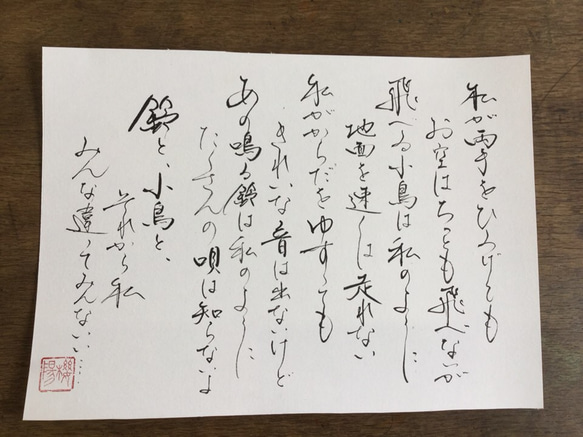 私が両手をひろげても
お空はちっとも飛べないが
飛べる小鳥は私のように
地面を速くは走れない
私がからだをゆすっても
きれいな音は出ないけど
あの鳴る鈴は私のように
たくさんの唄は知らないよ
鈴と、小鳥と、
それから私
みんな違ってみんないい…